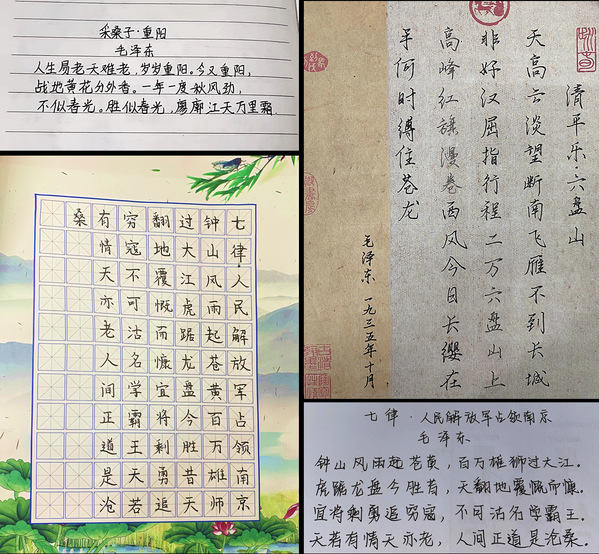 采桑子·重阳
毛泽东
人生易老天难老，岁岁重阳。今又重阳，
战地黄花分外香。一年一度秋风劲，
不似春光。胜似春光，廖廓江天万里霜
清平乐·六盘山
天高云淡望断南飞雁不到长城
非好汉屈指行程二万六盘山上
高峰红旗漫卷西风今日长缨在
手何时缚住苍龙
毛泽东 一九三五年十月
七律人民解放军占领南京
钟山风雨起苍黄百万雄师
过大江虎踞龙盘今胜昔天
翻地覆慨而慷宜将剩勇追
穷寇不可沽名学霸王天若
有情天亦老人间正道是沧
桑
七律·人民解放军占领南京
毛泽东
钟山风雨起苍黄，百万雄狮过大江。
虎踞龙盘今胜昔，天翻地覆慨而慷。
宜将剩勇追穷寇，不可沽名学霸王。
天若有情天亦老，人间正道是沧桑。